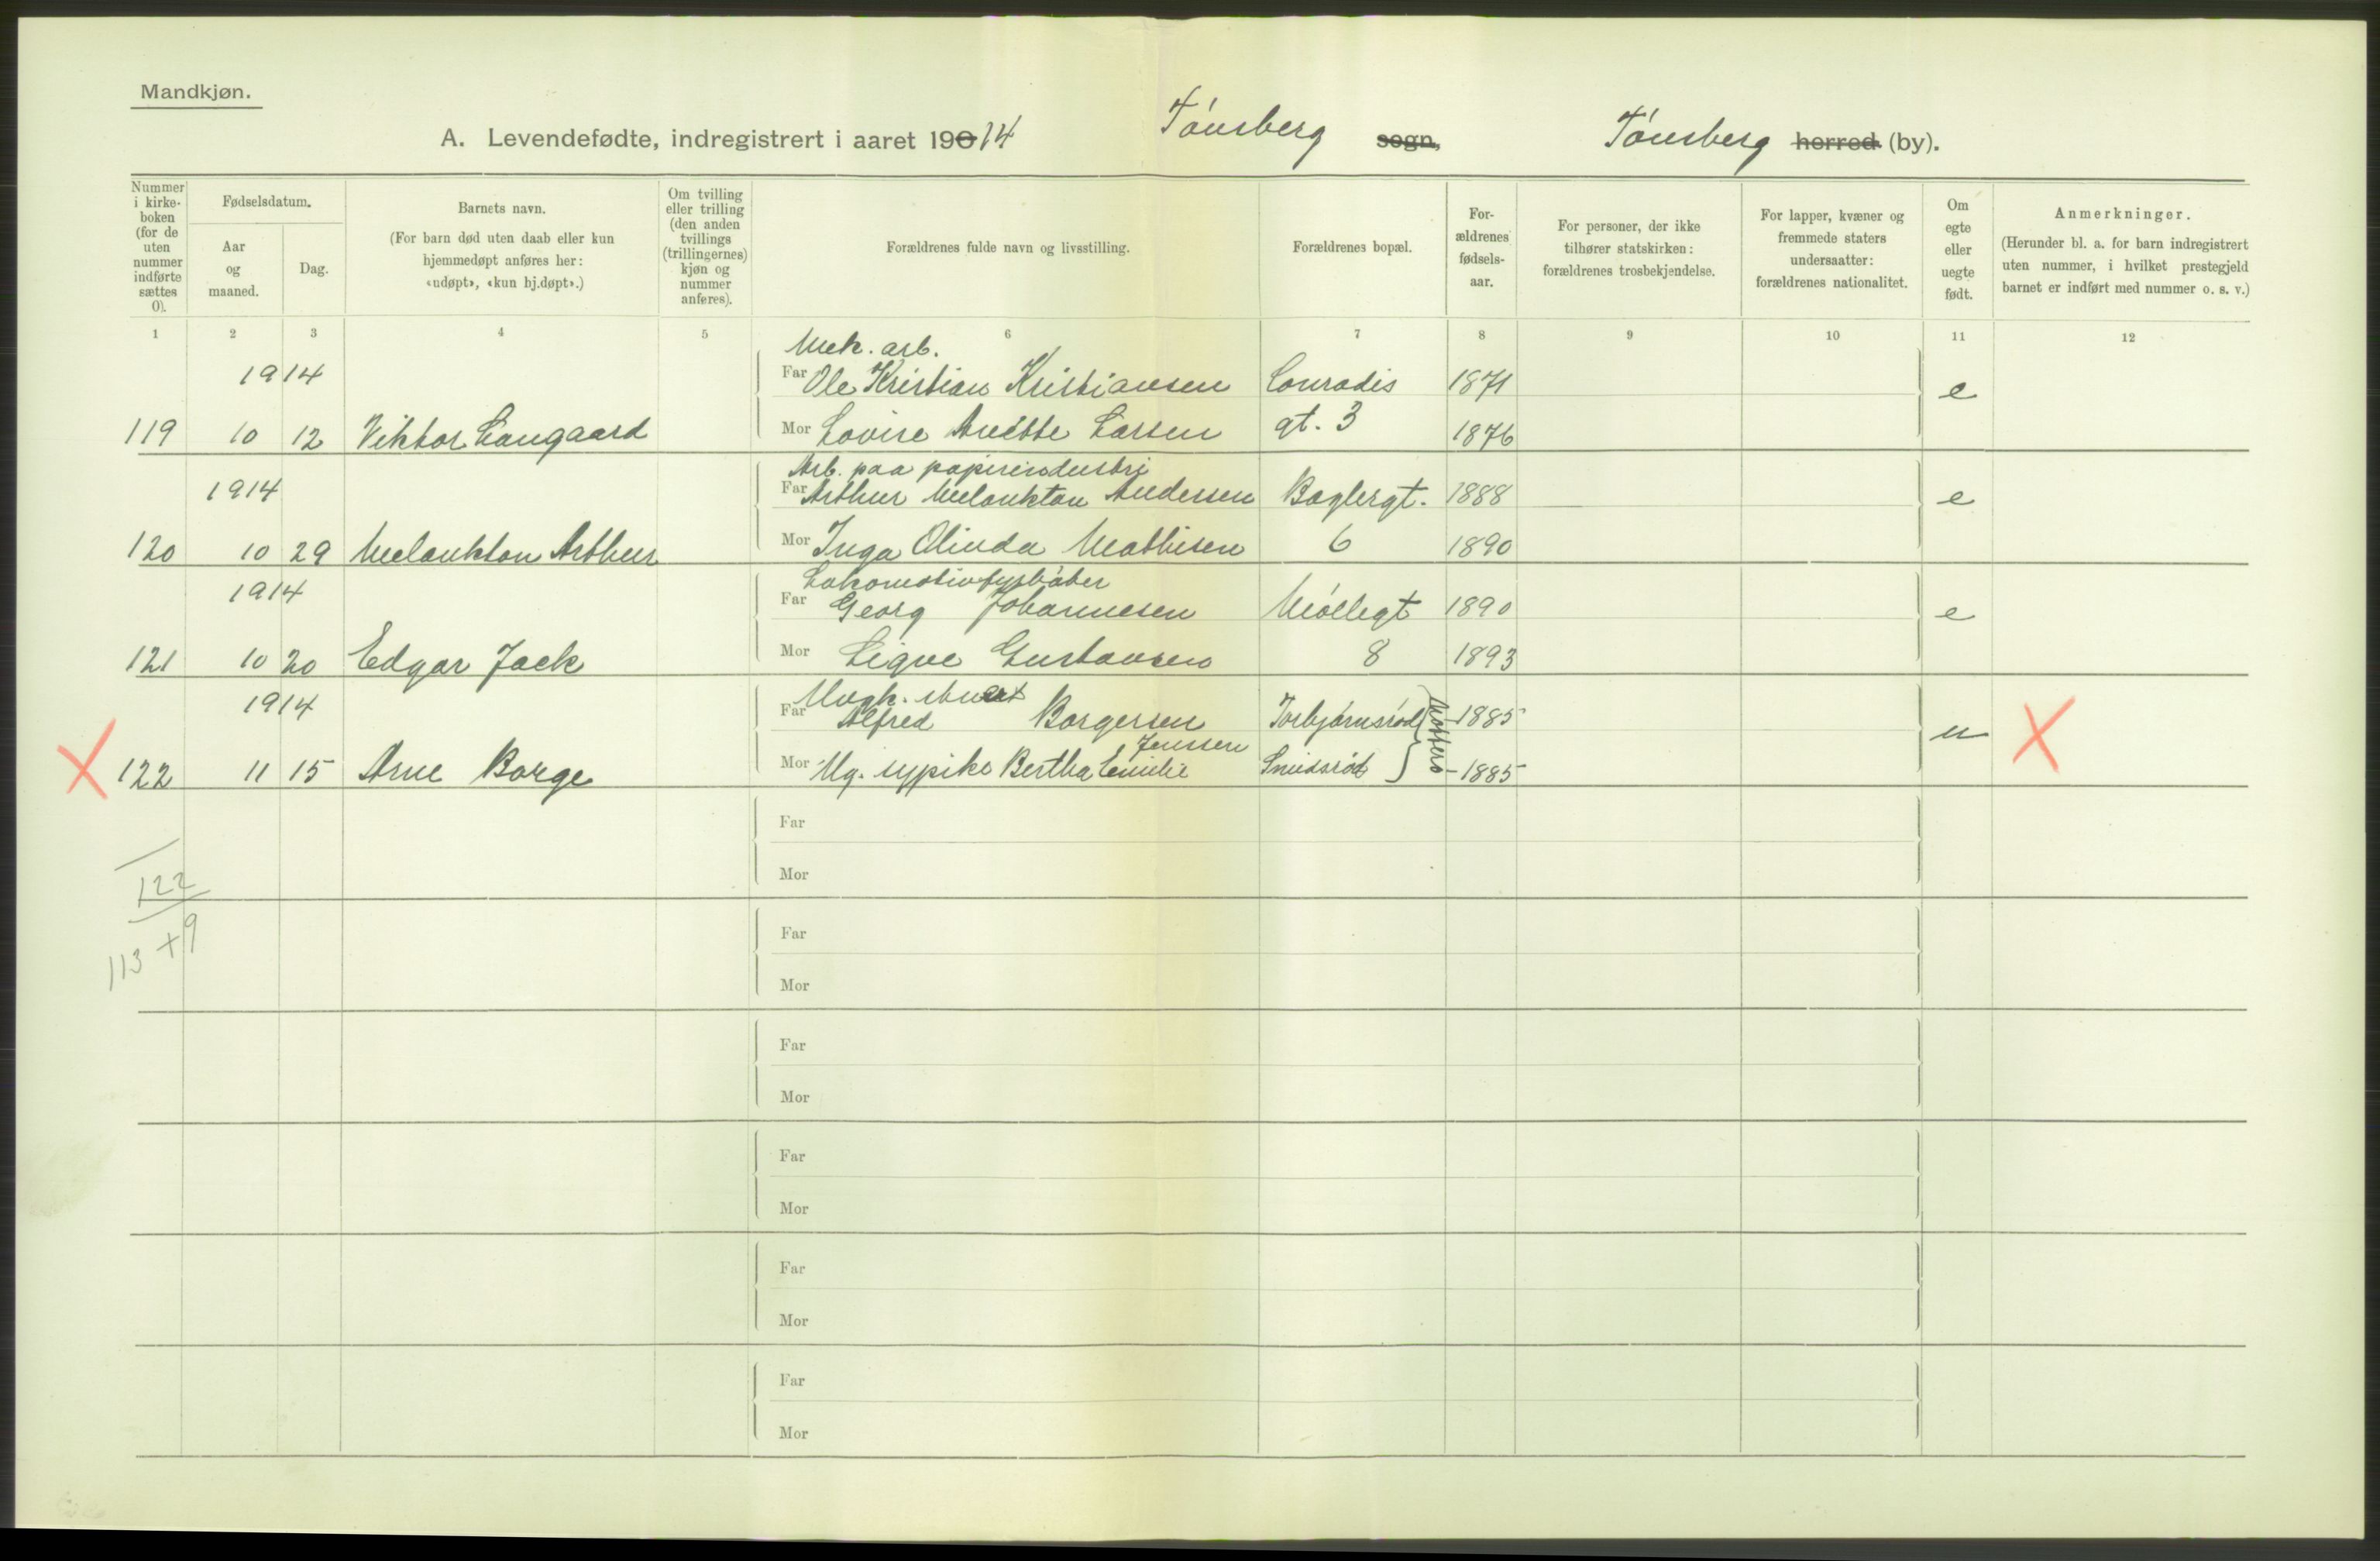 Mandkjøn.
A. Levendefødte, indregistrert i aaret 19014 Tønsberg sogn, Tønsberg herred (by).
Nummer i kirke-boken (for de uten nummer indførte sættes 0).
Fødselsdatum.
Aar og maaned.
Dag.
Barnets navn.
(For barn død uten daab eller kun hjemmedøpt anføres her: «udøpt», «kun hj.døpt».)
Om tvilling eller trilling (den anden tvillings (trillingernes) kjøn og nummer anføres).
Forældrenes fulde navn og livsstilling.
Forældrenes bopæl.
For-ældrenes fødsels-aar.
For personer, der ikke tilhører statskirken: forældrenes trosbekjendelse.
For lapper, kvæner og fremmede staters undersaatter: forældrenes nationalitet.
Om egte eller uegte født.
Anmerkninger.
(Herunder bl. a. for barn indregistrert uten nummer, i hvilket prestegjeld barnet er indført med nummer o. s. v.)
1 2 3 4 5 6 7 8 9 10 11 12
Mek. arb.
1914 Far Ole Kristian Kristiansen Conradis 1871 e
119 10 12 Viktor Langaard Mor Lovise Anette Larsen gt. 3 1876
Arb. paa papirindustri
1914 Far Arthur Melankton Andersen Baglergt. 1888 e
120 10 29 Melankton Arthur Mor Inga Olinda Mathisen 6 1890
Lokomotivfyrbøter
1914 Far Georg Johannesen Møllegt 1890 e
121 10 20 Edgar Jack Mor Signe Gustavsen 8 1893
1914 Far Alfred Borgersen Torbjørnsrød 1885 u
Jenssen
122 11 15 Arne Borge Mor Ug. sypike Bertha Emilie Smidsrød 1885
Far
Mor
122
Far
113 + 9
Mor
Far
Mor
Far
Mor
Far
Mor
Far
Mor